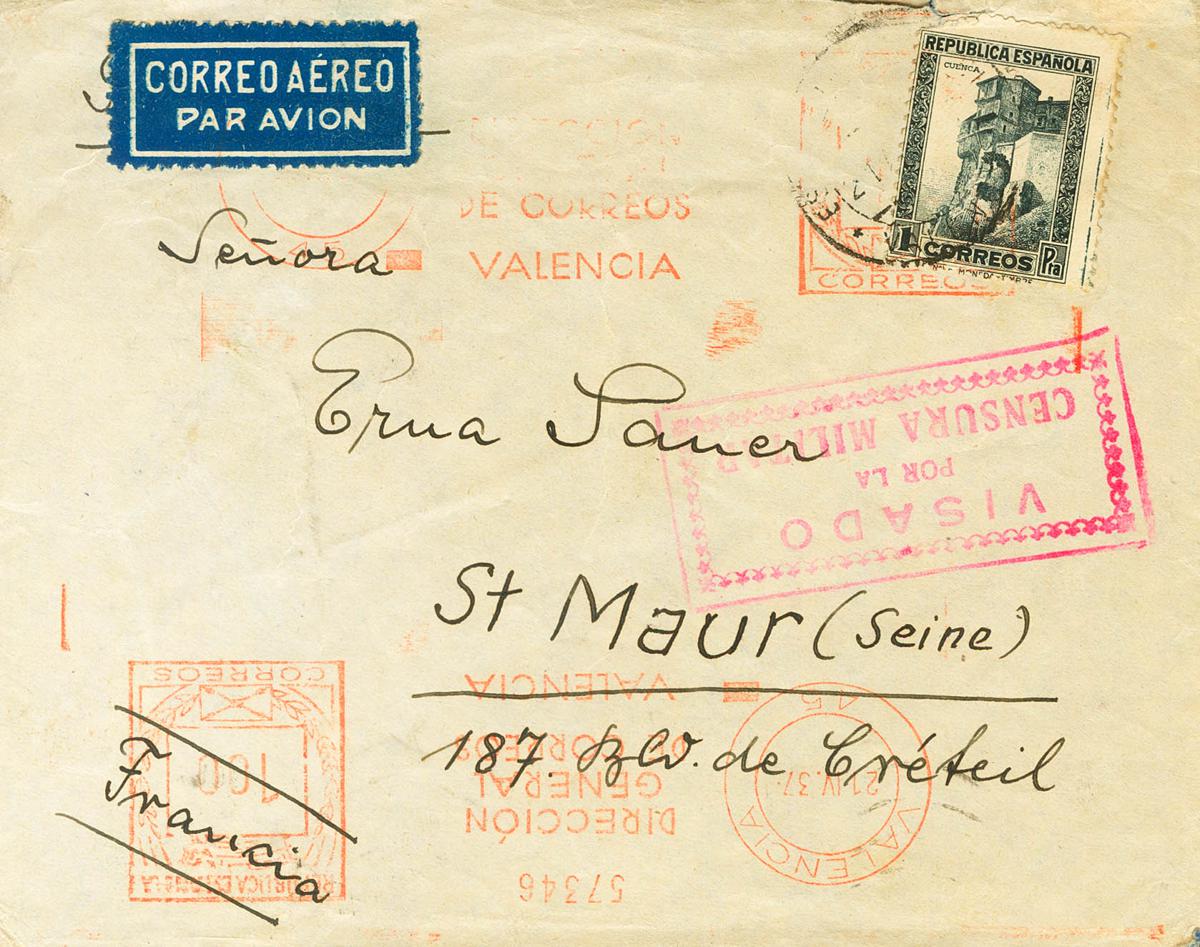 CORREO AÉREO
PAR AVION
REPUBLICA ESPAÑOLA
CUENCA
1 CORREOS Pta
DE CORREOS
VALENCIA
CORREOS
Señora
Erna Sauer
VISADO
POR LA
CENSURA MILITAR
St Maur (Seine)
187. Blv. de Créteil
Francia
57346
DIRECCIÓN
GENERAL
DE CORREOS
VALENCIA
VALENCIA
21.IV.37
15
CORREOS
100